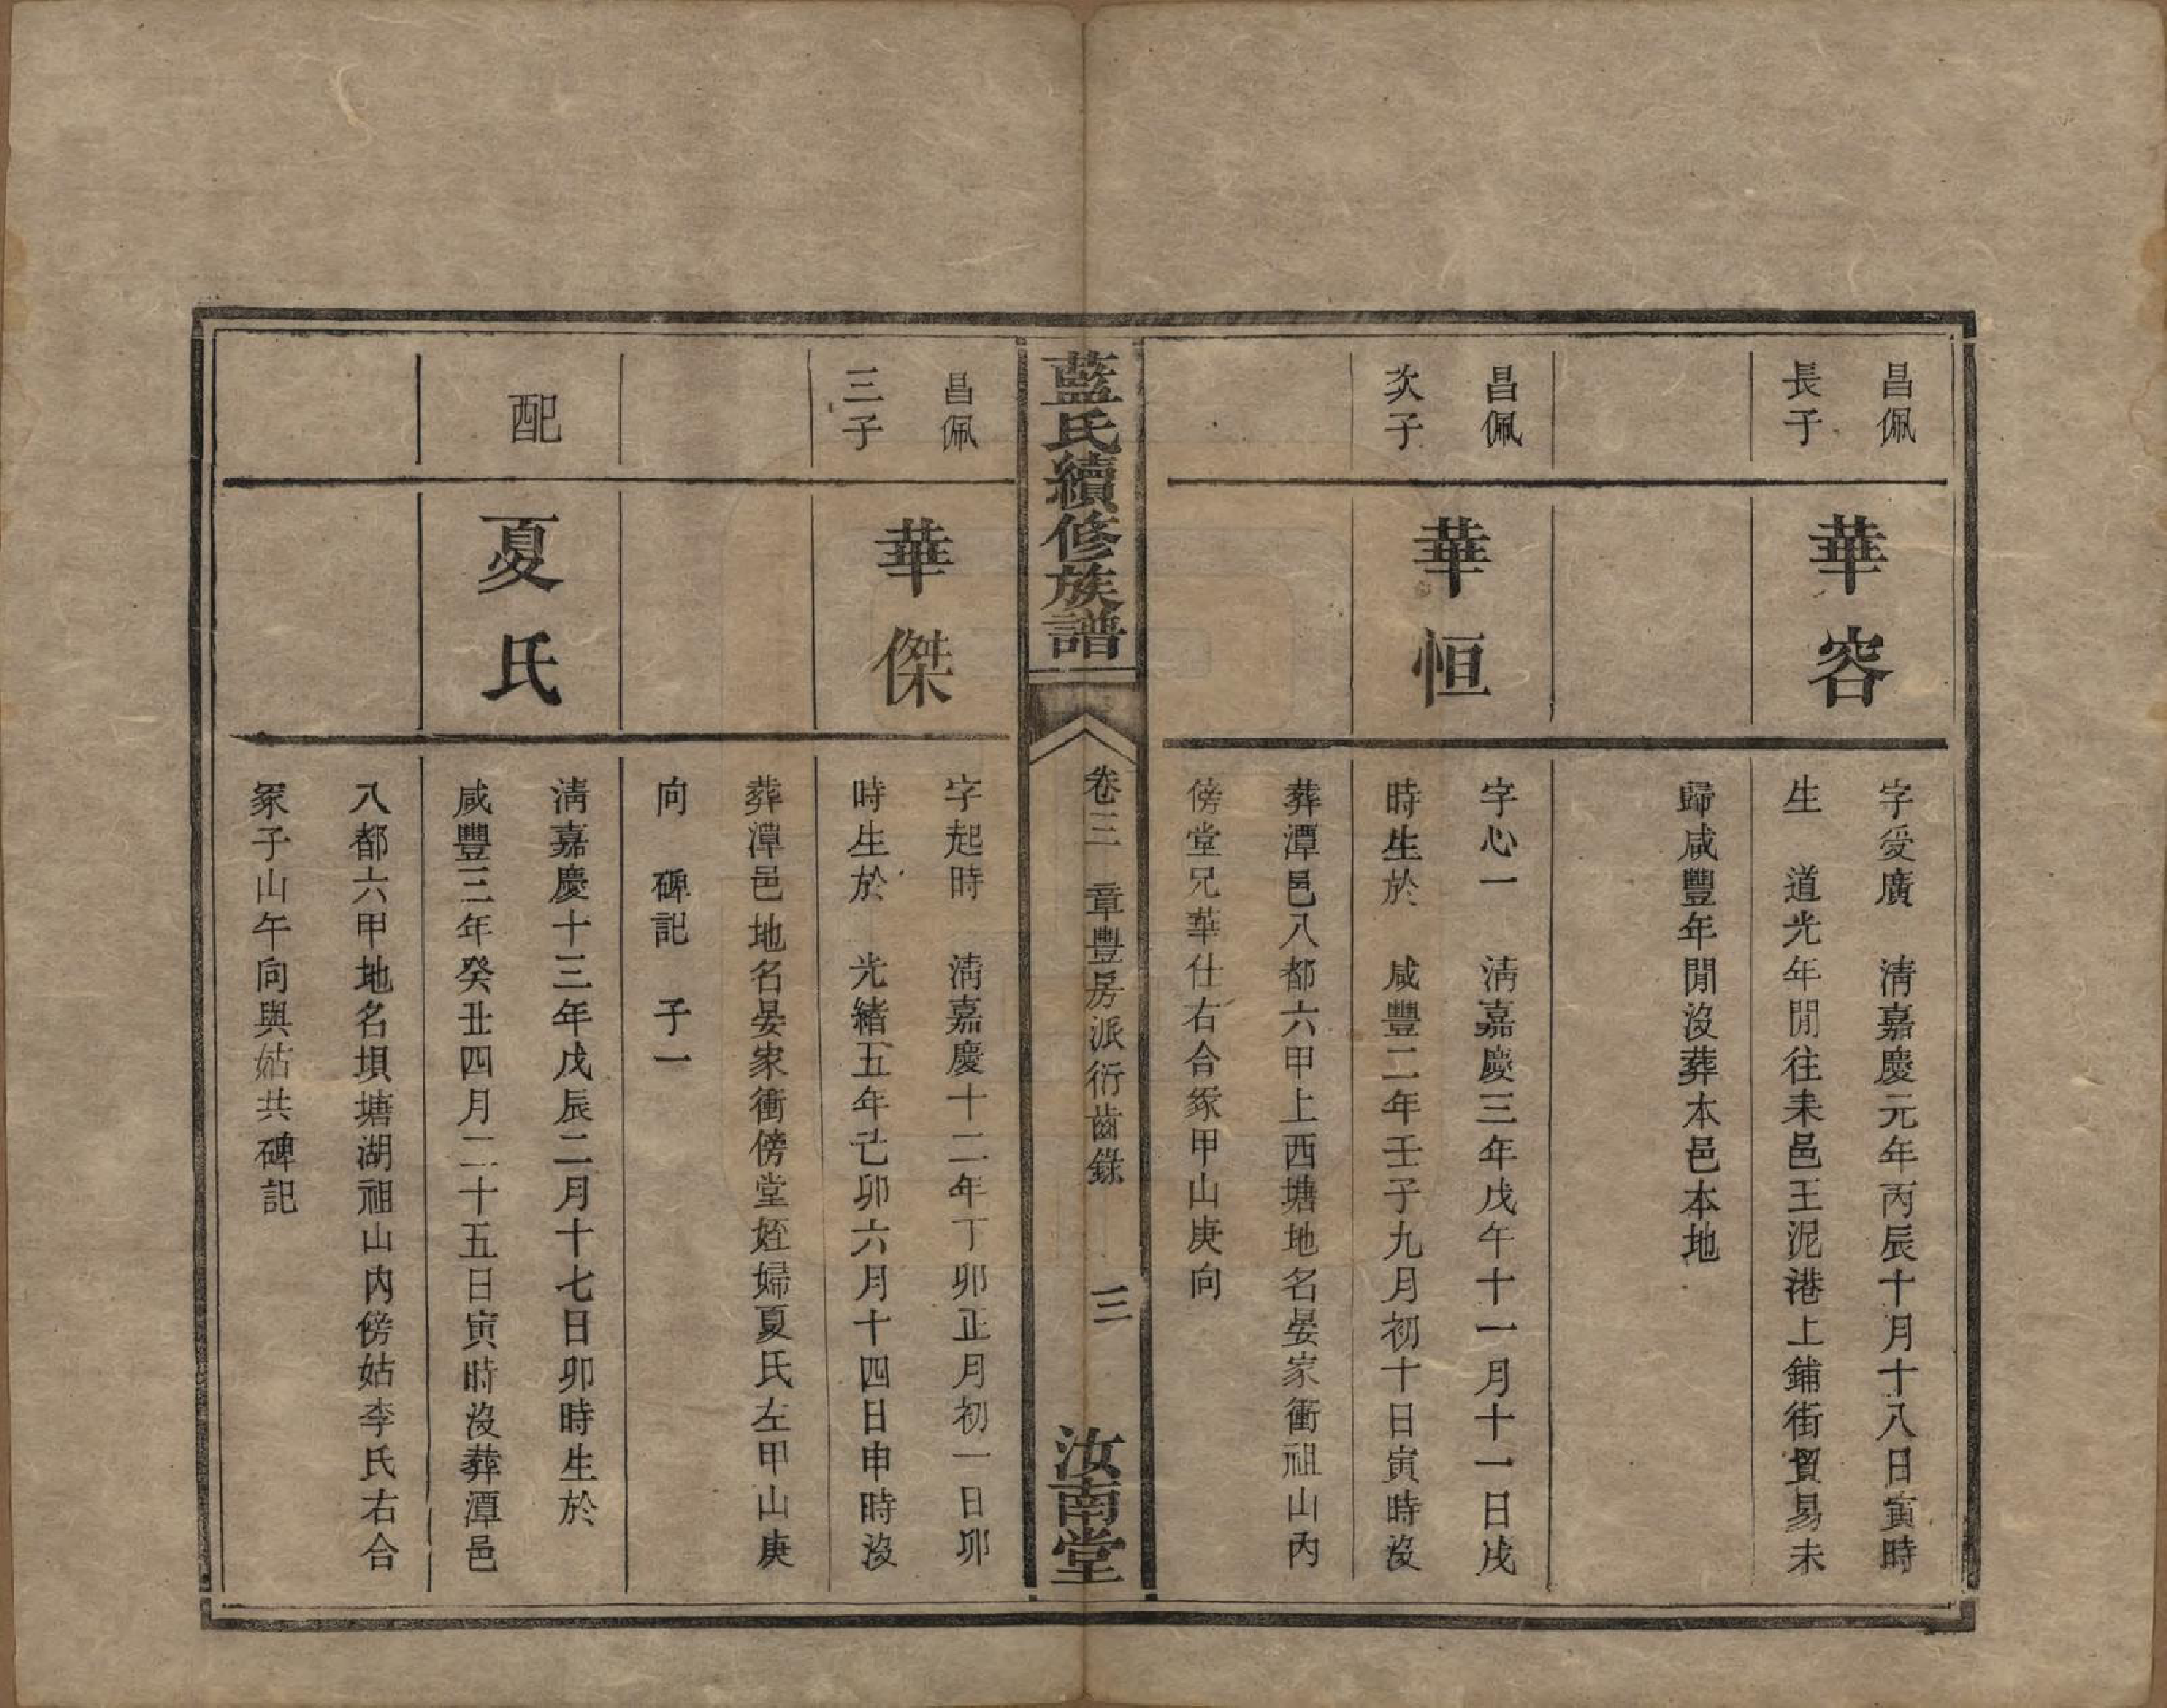 昌佩
長子
華容
字爰廣　清嘉慶元年丙辰十月十八日寅時
生　道光年閒往耒邑王泥港上鋪街貿易未
歸咸豐年閒沒葬本邑本地
昌佩
次子
華恒
字心一　清嘉慶三年戊午十一月十一日戌
時生於　咸豐二年壬子九月初十日寅時沒
葬潭邑八都六甲上西塘地名晏家衝祖山內
傍堂兄華仕右合冢甲山庚向
藍氏續修族譜
卷三　章豐房派衍齒錄
三
汝南堂
昌佩
三子
華傑
字起時　清嘉慶十二年丁卯正月初一日卯
時生於　光緒五年己卯六月十四日申時沒
葬潭邑地名晏家衝傍堂姪婦夏氏左甲山庚
向　碑記　子一
配
夏氏
清嘉慶十三年戊辰二月十七日卯時生於
咸豐三年癸丑四月二十五日寅時沒葬潭邑
八都六甲地名塤塘湖祖山內傍姑李氏右合
冢子山午向與姑共碑記